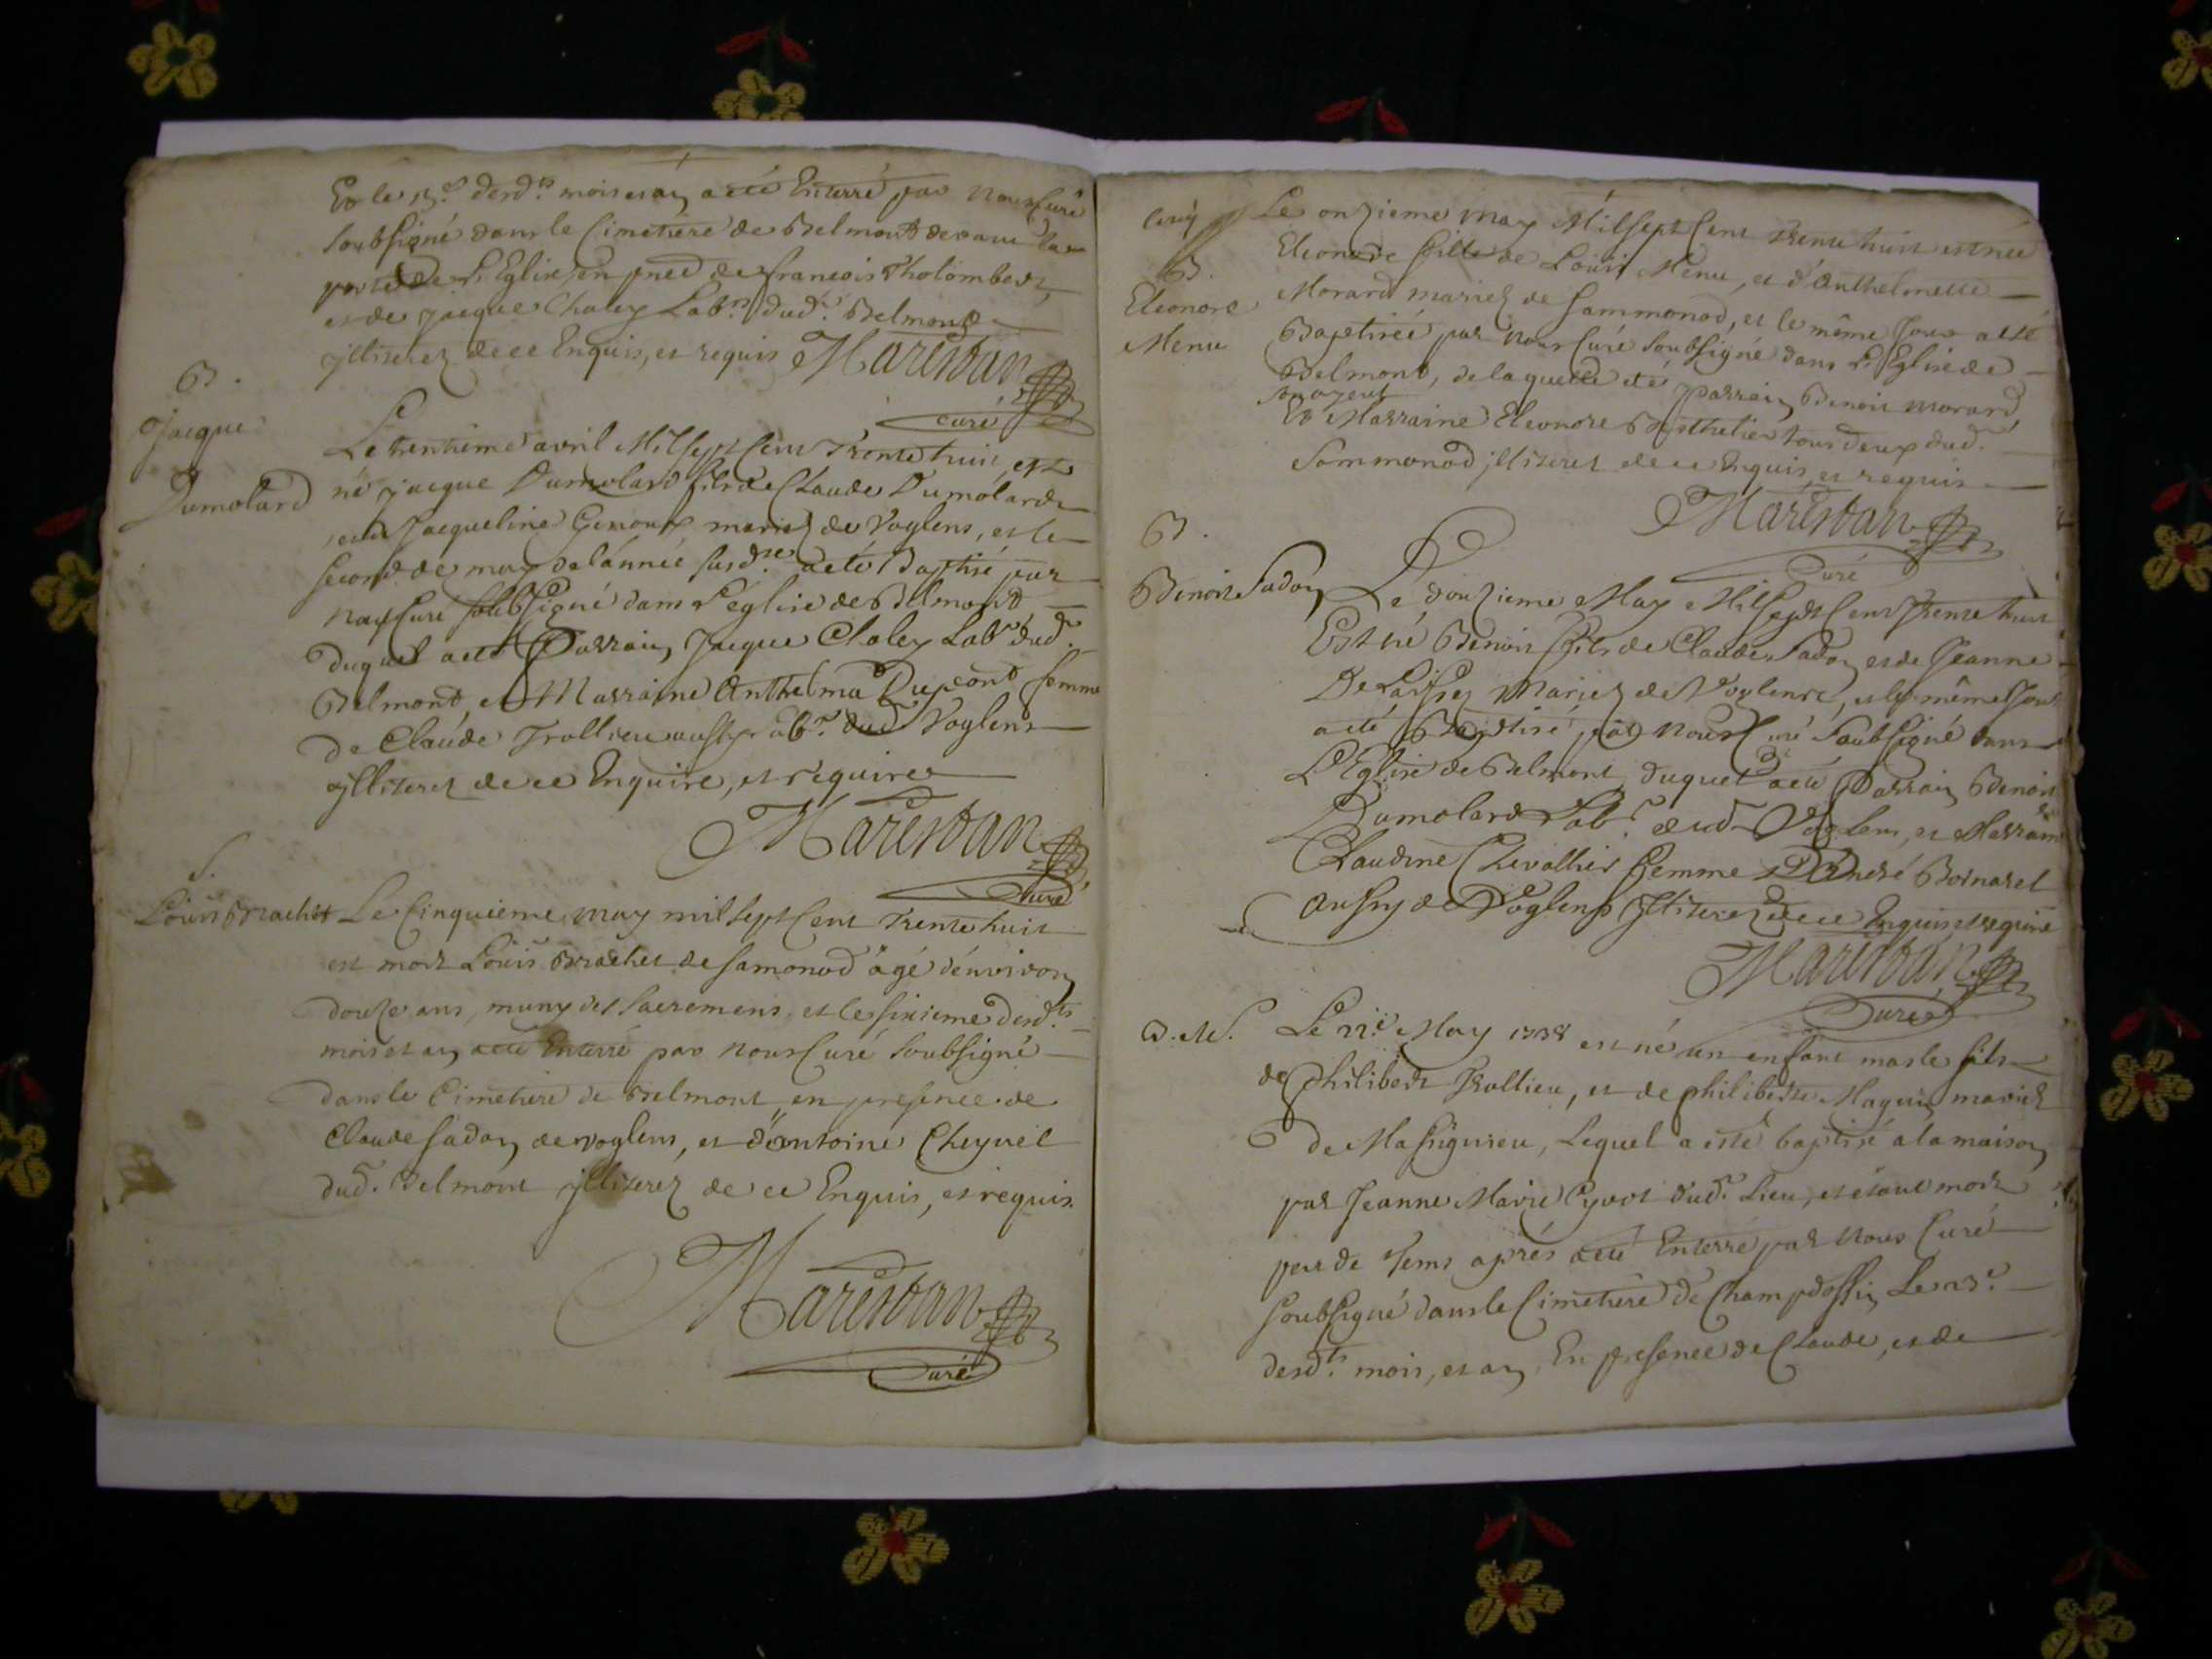 Et le 13.e desd.ts mois et an a eté Enterré par Nous Curé
soubsigné dans le Cimetiere de Belmont devant la
porte de L'Eglise en pnce de francois Tholombert,
et de jacque Chaley Lab.rs dud.t Belmont
jlliterez de ce Enquis, et requis Marestan
curé
B.
Jacque
Dumolard
Le trentiéme avril Mil sept Cent Trente huit, est
né jacque Dumolard fils de Claude Dumolard
et de Jacqueline Genoux mariez de Voglens, et le
second de may de l'année susd.te a eté Baptisé par
nous Curé soubsigné dans L'eglise de Belmont
duquel a eté Parrain Jacque Chaley Lab.r dud.t
Belmont, et Marraine Anthelma Dupont femme
de Claude Trollieu aussy Lab.r dud. Voglens
jlliterez de ce Enquire, et require
Marestan
Curé
S.
Louis Brachet
Le Cinquieme may mil sept Cent Trente huit
est mort Louis Brachet de samonod âgé d'environ
douze ans, muny des sacremens, et le sixieme desd.ts
mois et an a eté Enterré par nous Curé soubsigné
dans le Cimetiere de Belmont en presence de
Claude sadon de voglens, et d'antoine Cheynel
dud.t Belmont jlliterez de ce Enquis, et requis.
Marestan
Curé
B.
Eleonore
Menu
Le onzieme may Mil sept Cent Trente huit est née
Eleonore fille de Louis Menu, et d'Anthelmette
Morard mariez de sammonod, et le même Jour a eté
Baptisée par nous Curé soubsigné dans L'Eglise de
Belmont, de laquelle a eté parrain Benoit morard
son ayeul
Et Marraine Eleonore Berthelier tous deux dud.t
sommonod jlliterez de ce Enquis, et requis
Marestan
Curé
B.
Benoit Sadon
Le douzieme May Mil sept Cent Trente huit
Est né Benoit fils de Claude Sadon et de Jeanne
Mariez de Voglens, et le même Jour
a eté Baptisé par nous Curé Soubsigné dans
L'Eglise de Belmont, duquel a eté Parrain Benoit
Dumolard Lab.r dud.t Voglens, et Marraine
Claudine Chevallier femme D'André Bornarel
Aussy de Voglens Jlliterez de ce Enquis et requis
Marestan
Curé
Le 22.e May 1738 est né un enfant masle fils
de Philibert Trollieu, et de philiberte Magnin mariez
de Massignieu, Lequel a esté baptisé a la maison
par Jeanne Marie Cyvot dud.t Lieu, et étant mort
peu de tems aprés a eté Enterré par Nous Curé
soubsigné dans le Cimetiere de Champdossin Le 23.e
desd.ts mois, et an En presence de Claude, et de